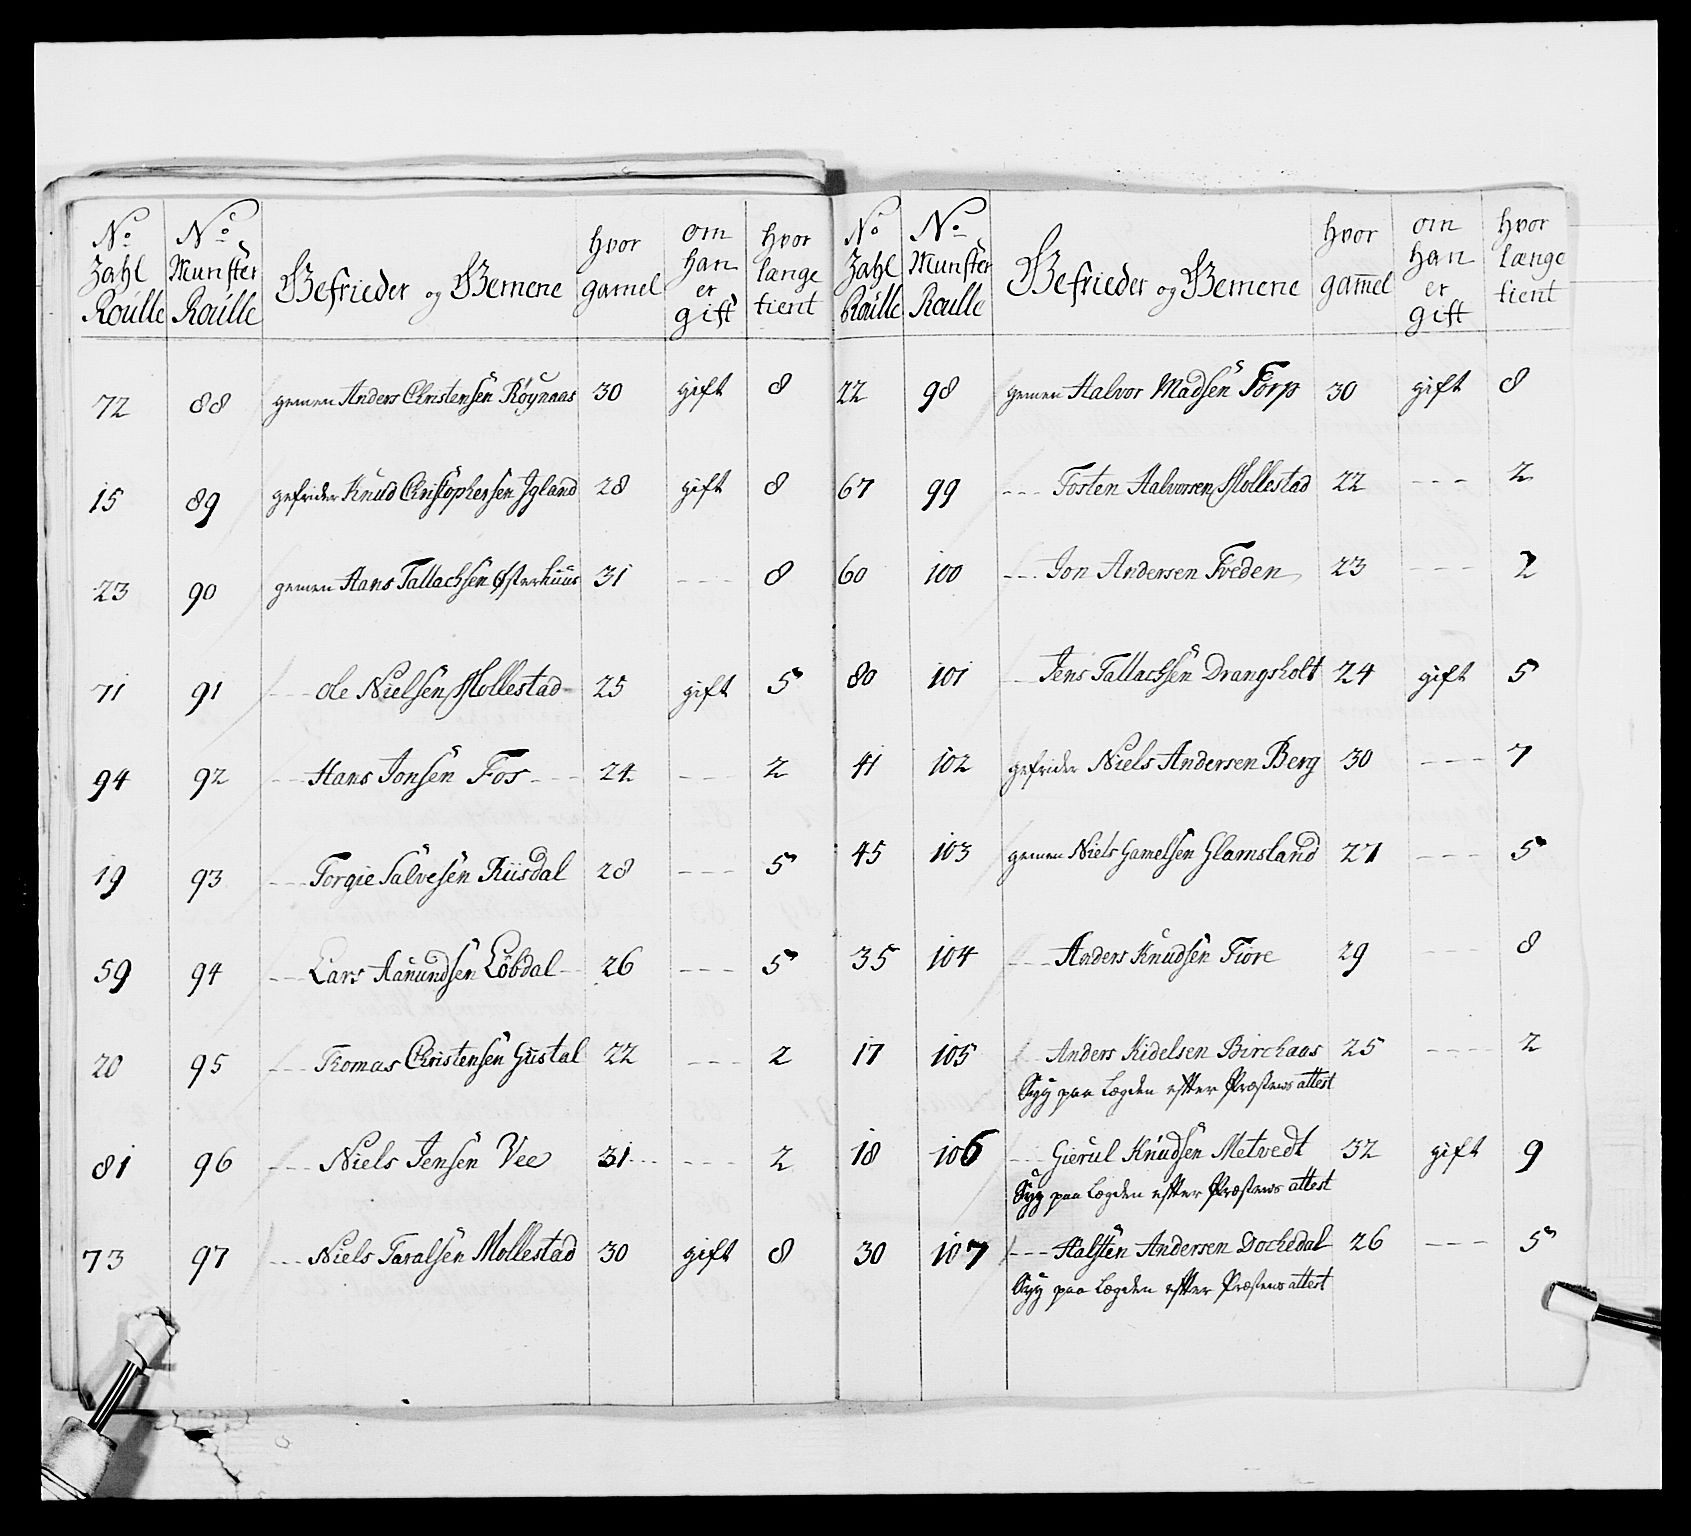 No Zahl Roulle | No Munster Roulle | Gefrieder og Gemene | hvor gamel | om han er gift | hvor længe tient
72 88 gemen Anders Christensen Röynaas 30 gift 8
15 89 gefrider Knud Christophersen Igland 28 gift 8
23 90 gemen Hans Tallachsen Østerhuus 31 --- 8
71 91 --- Ole Nielsen Mollestad 25 gift 5
94 92 --- Hans Jonsen Fos --- 24 --- 2
19 93 --- Torgie Salvesen Riisdal 28 --- 5
59 94 --- Lars Aanundsen Löbdal 26 --- 5
20 95 --- Thomas Christensen Gustal 22 --- 2
81 96 --- Niels Jensen Vee 31 --- 2
73 97 --- Niels Taralsen Mollestad 30 gift 8
No Zahl Roulle | No Munster Roulle | Gefrieder og Gemene | hvor gam̄el | om han er gift | hvor længe tient
22 98 gemen Halvor Madsen Torp 30 gift 8
67 99 --- Tosten Halvorsen Mollestad 22 --- 2
60 100 --- Jon Andersen Tveden 23 --- 2
80 101 --- Jens Tallachsen Drangsholt 24 gift 5
41 102 gefrider Niels Andersen Berg 30 --- 7
45 103 gemen Niels Gamelsen Glamsland 27 --- 5
35 104 --- Anders Knudsen Fiore 29 --- 8
17 105 --- Anders Kidelsen Birchaas 25 --- 2
Syg paa Lægden efter Præstens attest
18 106 --- Gierul Knudsen Metvedt 32 gift 9
Syg paa Lægden efter Præstens attest
30 107 --- Halsten Andersen Dochedal 26 --- 5
Syg paa Lægden efter Præstens attest